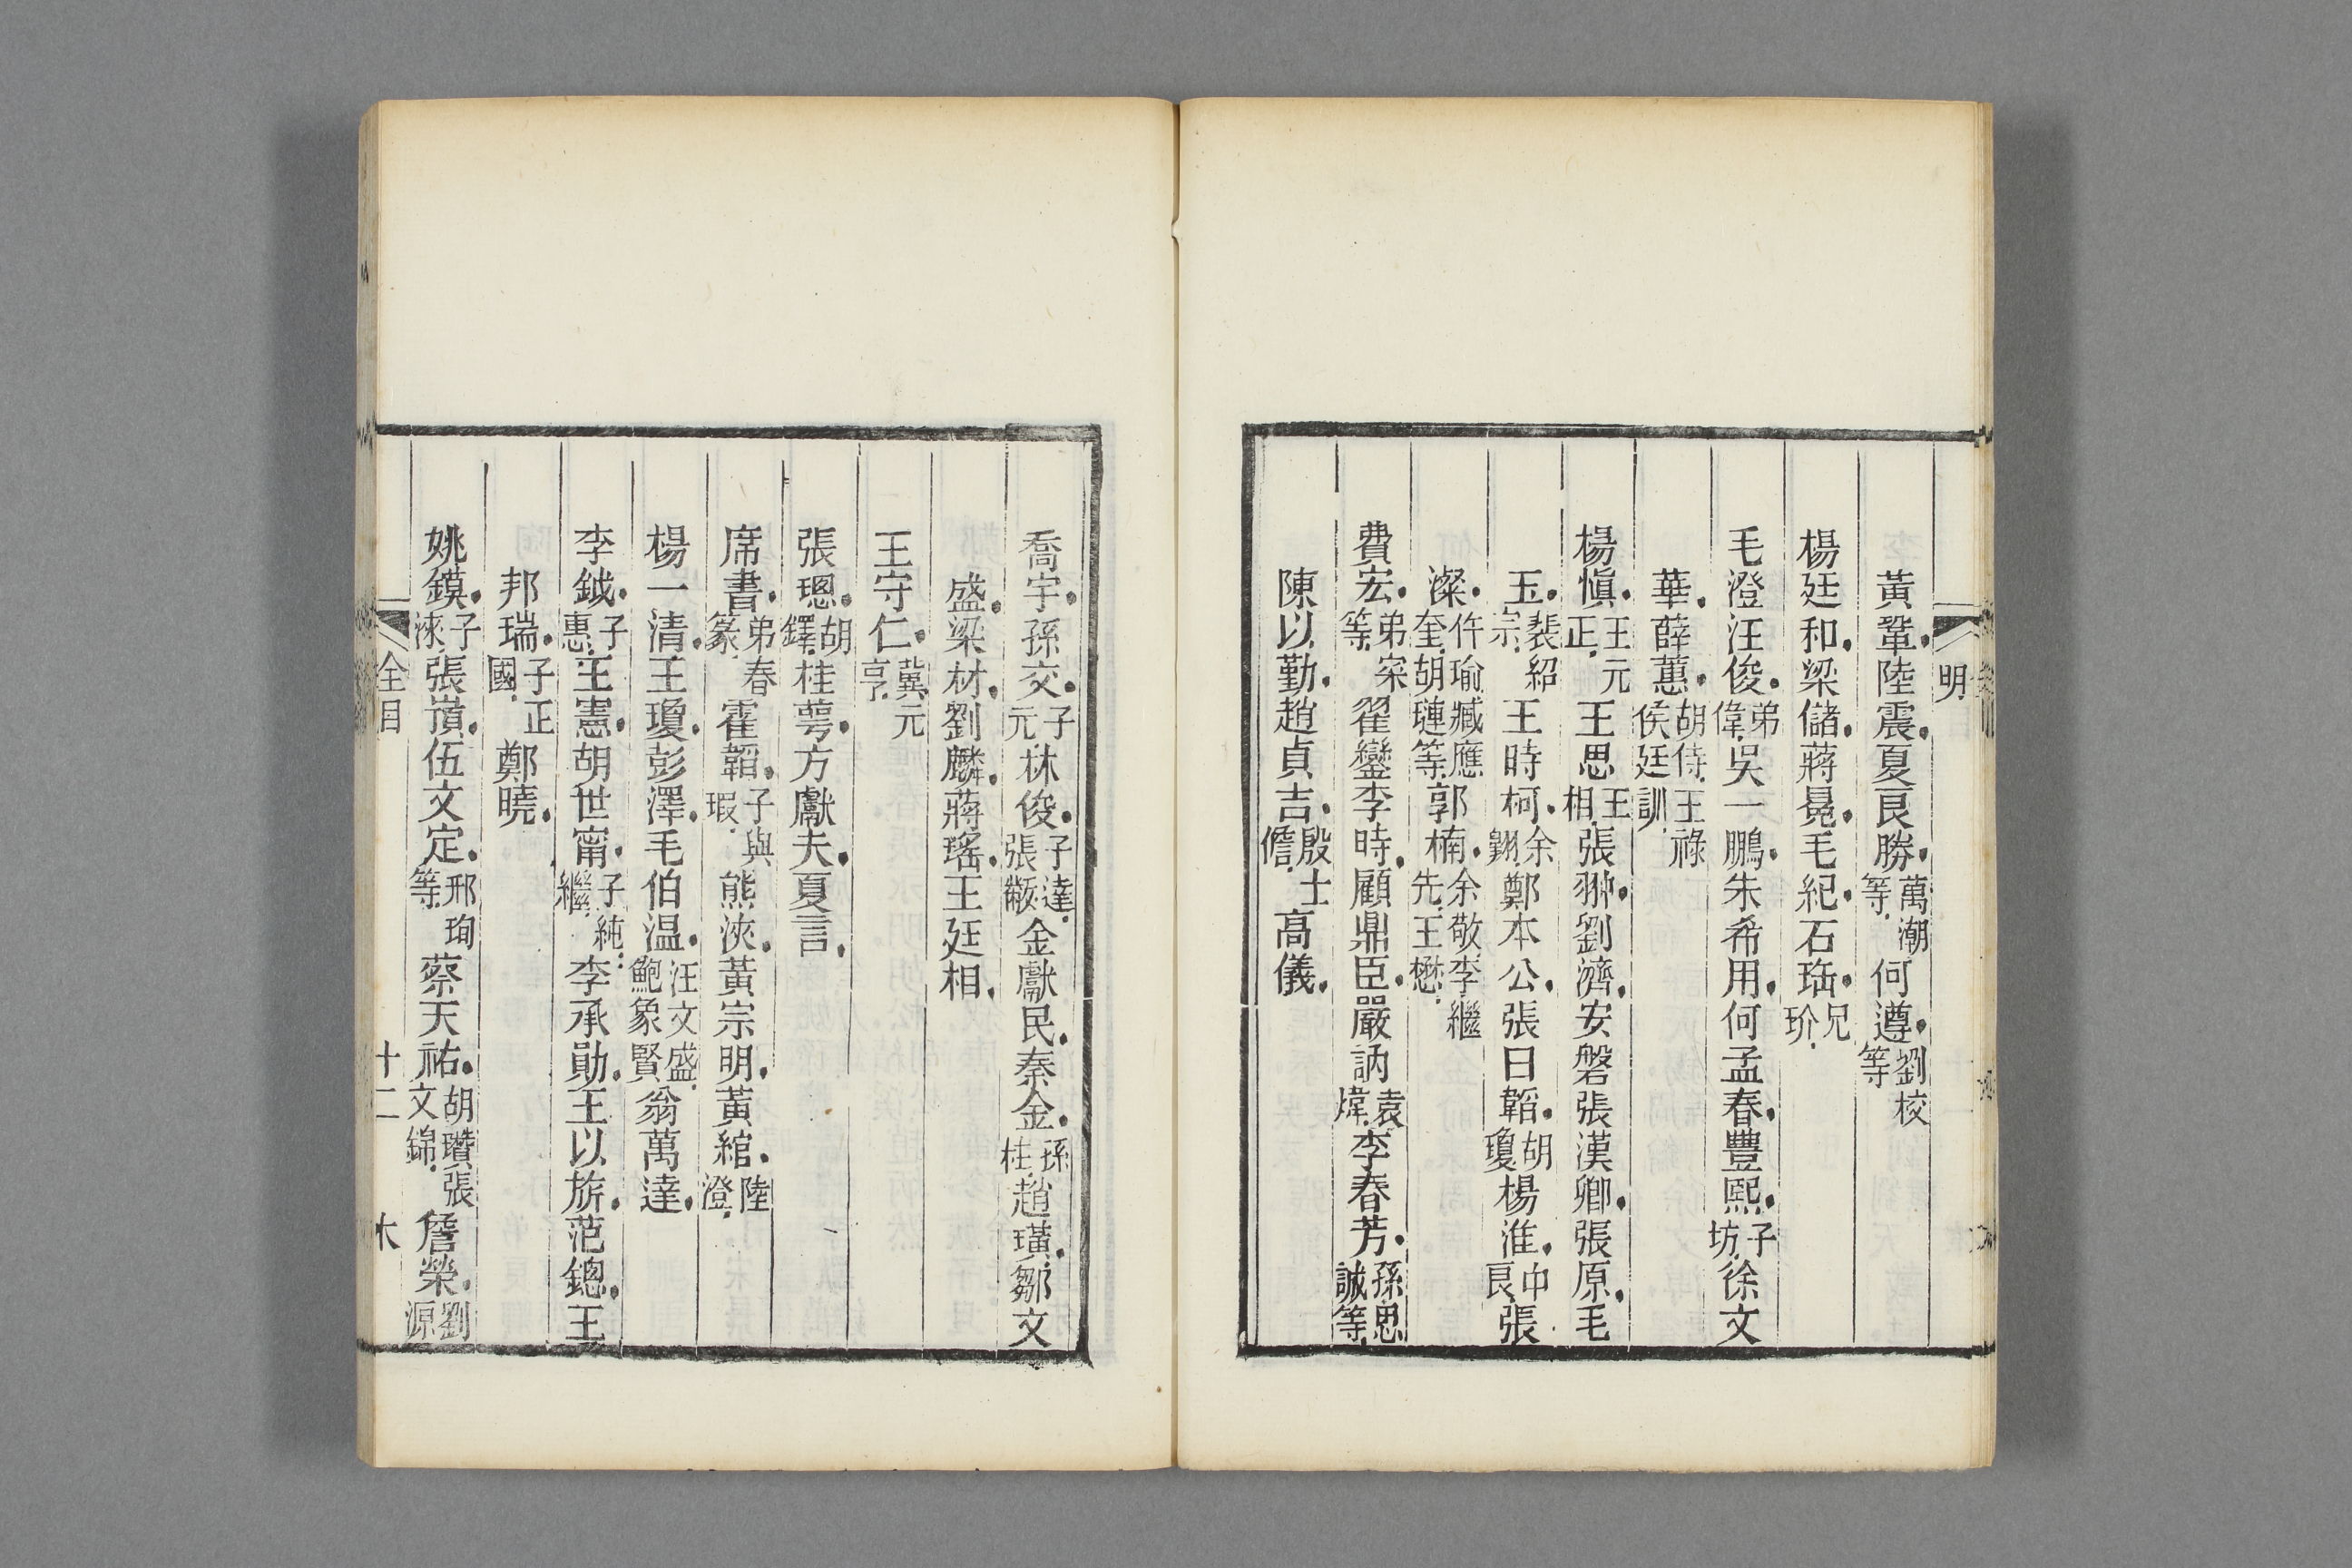 明
黃鞏陸震夏良勝萬潮等何遵劉校等
楊廷和梁儲蔣冕毛紀石珤兄玠
毛澄汪俊弟偉吳一鵬朱希用何孟春豐熙子坊徐文
華薛蕙胡侍王祿侯廷訓
楊慎王元正王思王相張翀劉濟安磐張漢卿張原毛
玉裴紹宗王時柯余翺鄭本公張日韜胡瓊楊淮申良張
澯仵瑜臧應奎胡璉等郭楠余敬李繼先王懋
費宏弟寀等翟鑾李時顧鼎臣嚴訥袁煒李春芳孫思誠等
陳以勤趙貞吉殷士儋高儀
喬宇孫交子元林俊子達張黻金獻民秦金孫柱趙璜鄒文
盛梁材劉麟蔣瑤王廷相
王守仁冀元亨
張璁胡鐸桂萼方獻夫夏言
席書弟春篆霍韜子與瑕熊浹黃宗明黃綰陸澄
楊一清王瓊彭澤毛伯温汪文盛鮑象賢翁萬達
李鉞子惠王憲胡世甯子純繼李承勛王以旂范鏓王
邦瑞子正國鄭曉
姚鏌子淶張嵿伍文定邢珣等蔡天祐胡瓚張文錦詹榮劉源
全目
十二